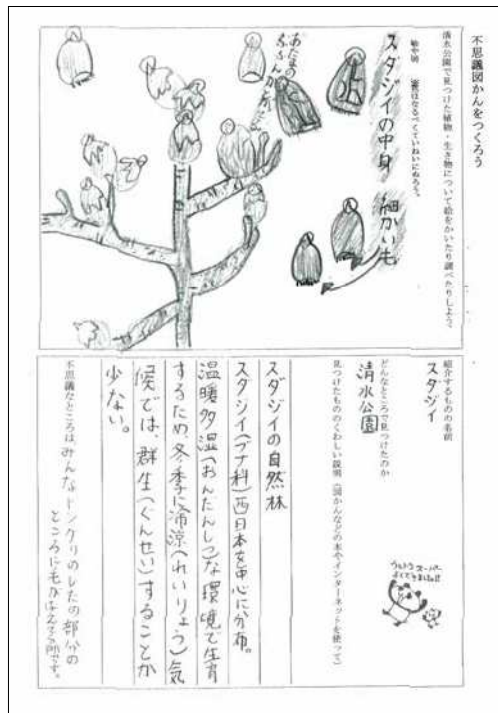 不思議図かんをつくろう
清水公園で見つけた植物・生き物について絵をかいたり調べたりしよう。
スダジイの中身
細かい毛
紹介するものの名前
スダジイ
どんなところで見つけたのか
清水公園
見つけたもののくわしい説明(図かんなどの本やインターネットを使って)
スダジイの自然林
スダジイ(ブナ科)西日本を中心に分布。
温暖多湿(おんたんしつ)な環境で生育
するため、冬季に冷涼(れいりょう)気
候では、群生(ぐんせい)することが
少ない。
不思議なところは、みんなドングリのしたの部分の
ところに毛が